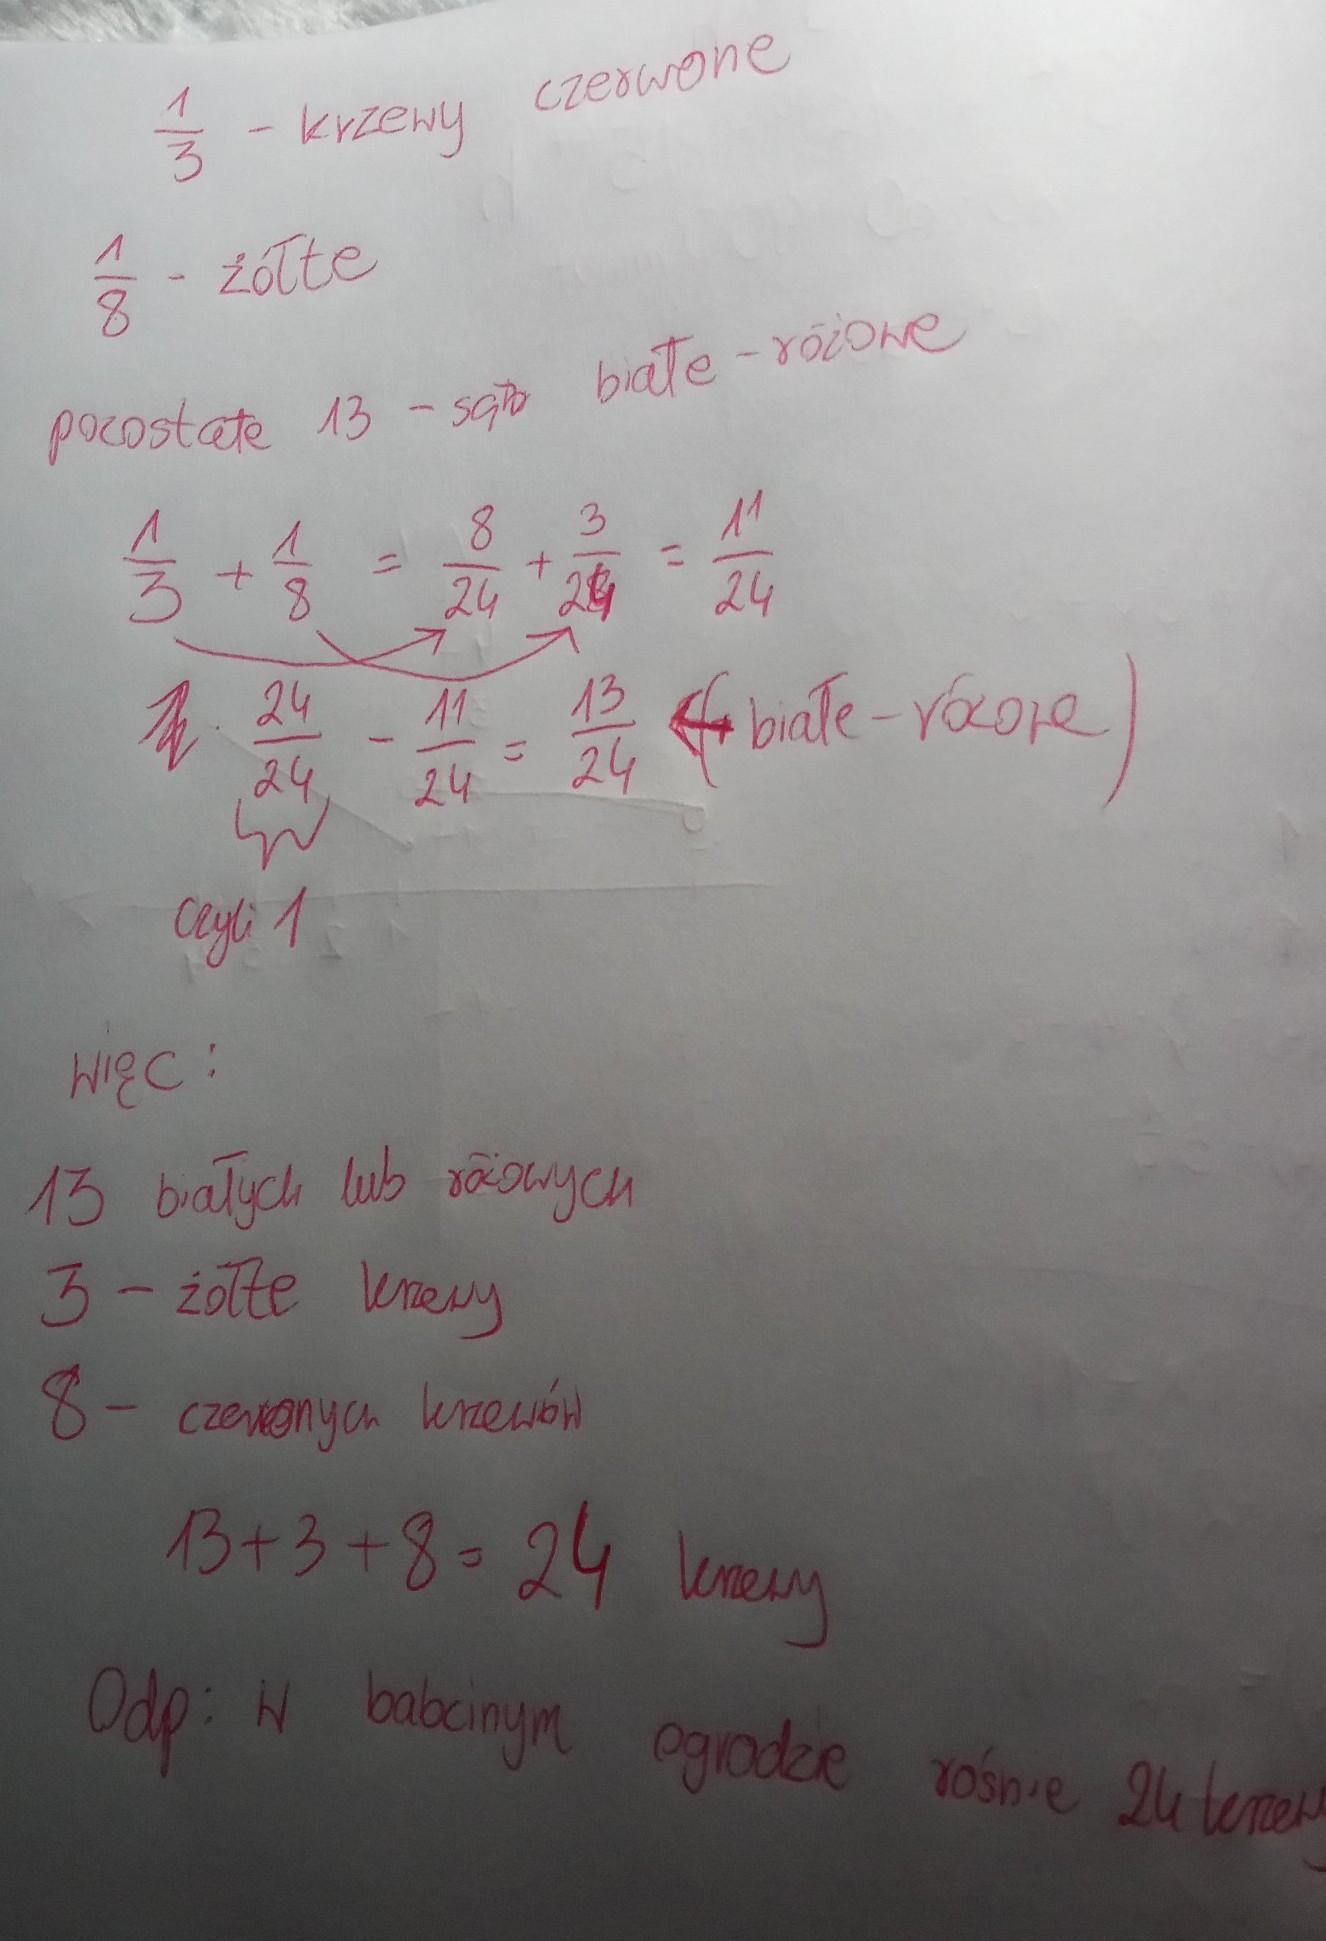 1/3 - krzewy czerwone
1/8 - żółte
pozostałe 13 - są białe - różowe
1/3 + 1/8 = 8/24 + 3/24 = 11/24
24/24 - 11/24 = 13/24 ← (białe - różowe)
czyli 1
więc:
13 białych lub różowych
3 - żółte krzewy
8 - czerwonych krzewów
13 + 3 + 8 = 24 krzewy
Odp: W babcinym ogrodzie rośnie 24 krzewy